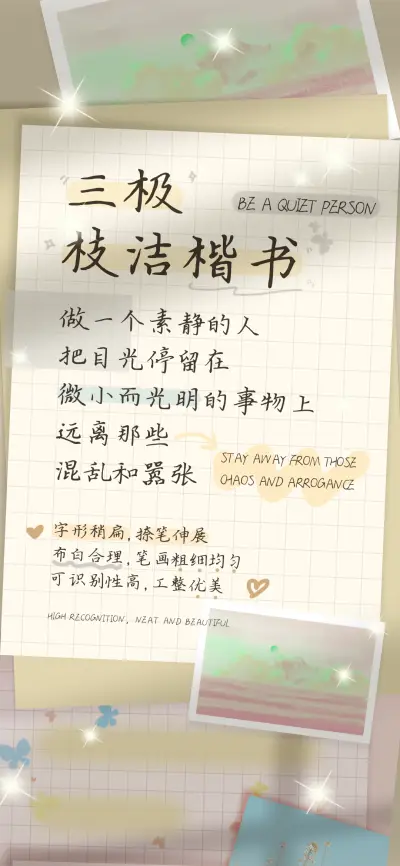 三极
BE A QUIET PERSON
枝洁楷书
做一个素静的人
把目光停留在
微小而光明的事物上
远离那些
混乱和嚣张
STAY AWAY FROM THOSE
CHAOS AND ARROGANCE
字形稍扁,捺笔伸展
布白合理,笔画粗细均匀
可识别性高,工整优美
HIGH RECOGNITION, NEAT AND BEAUTIFUL